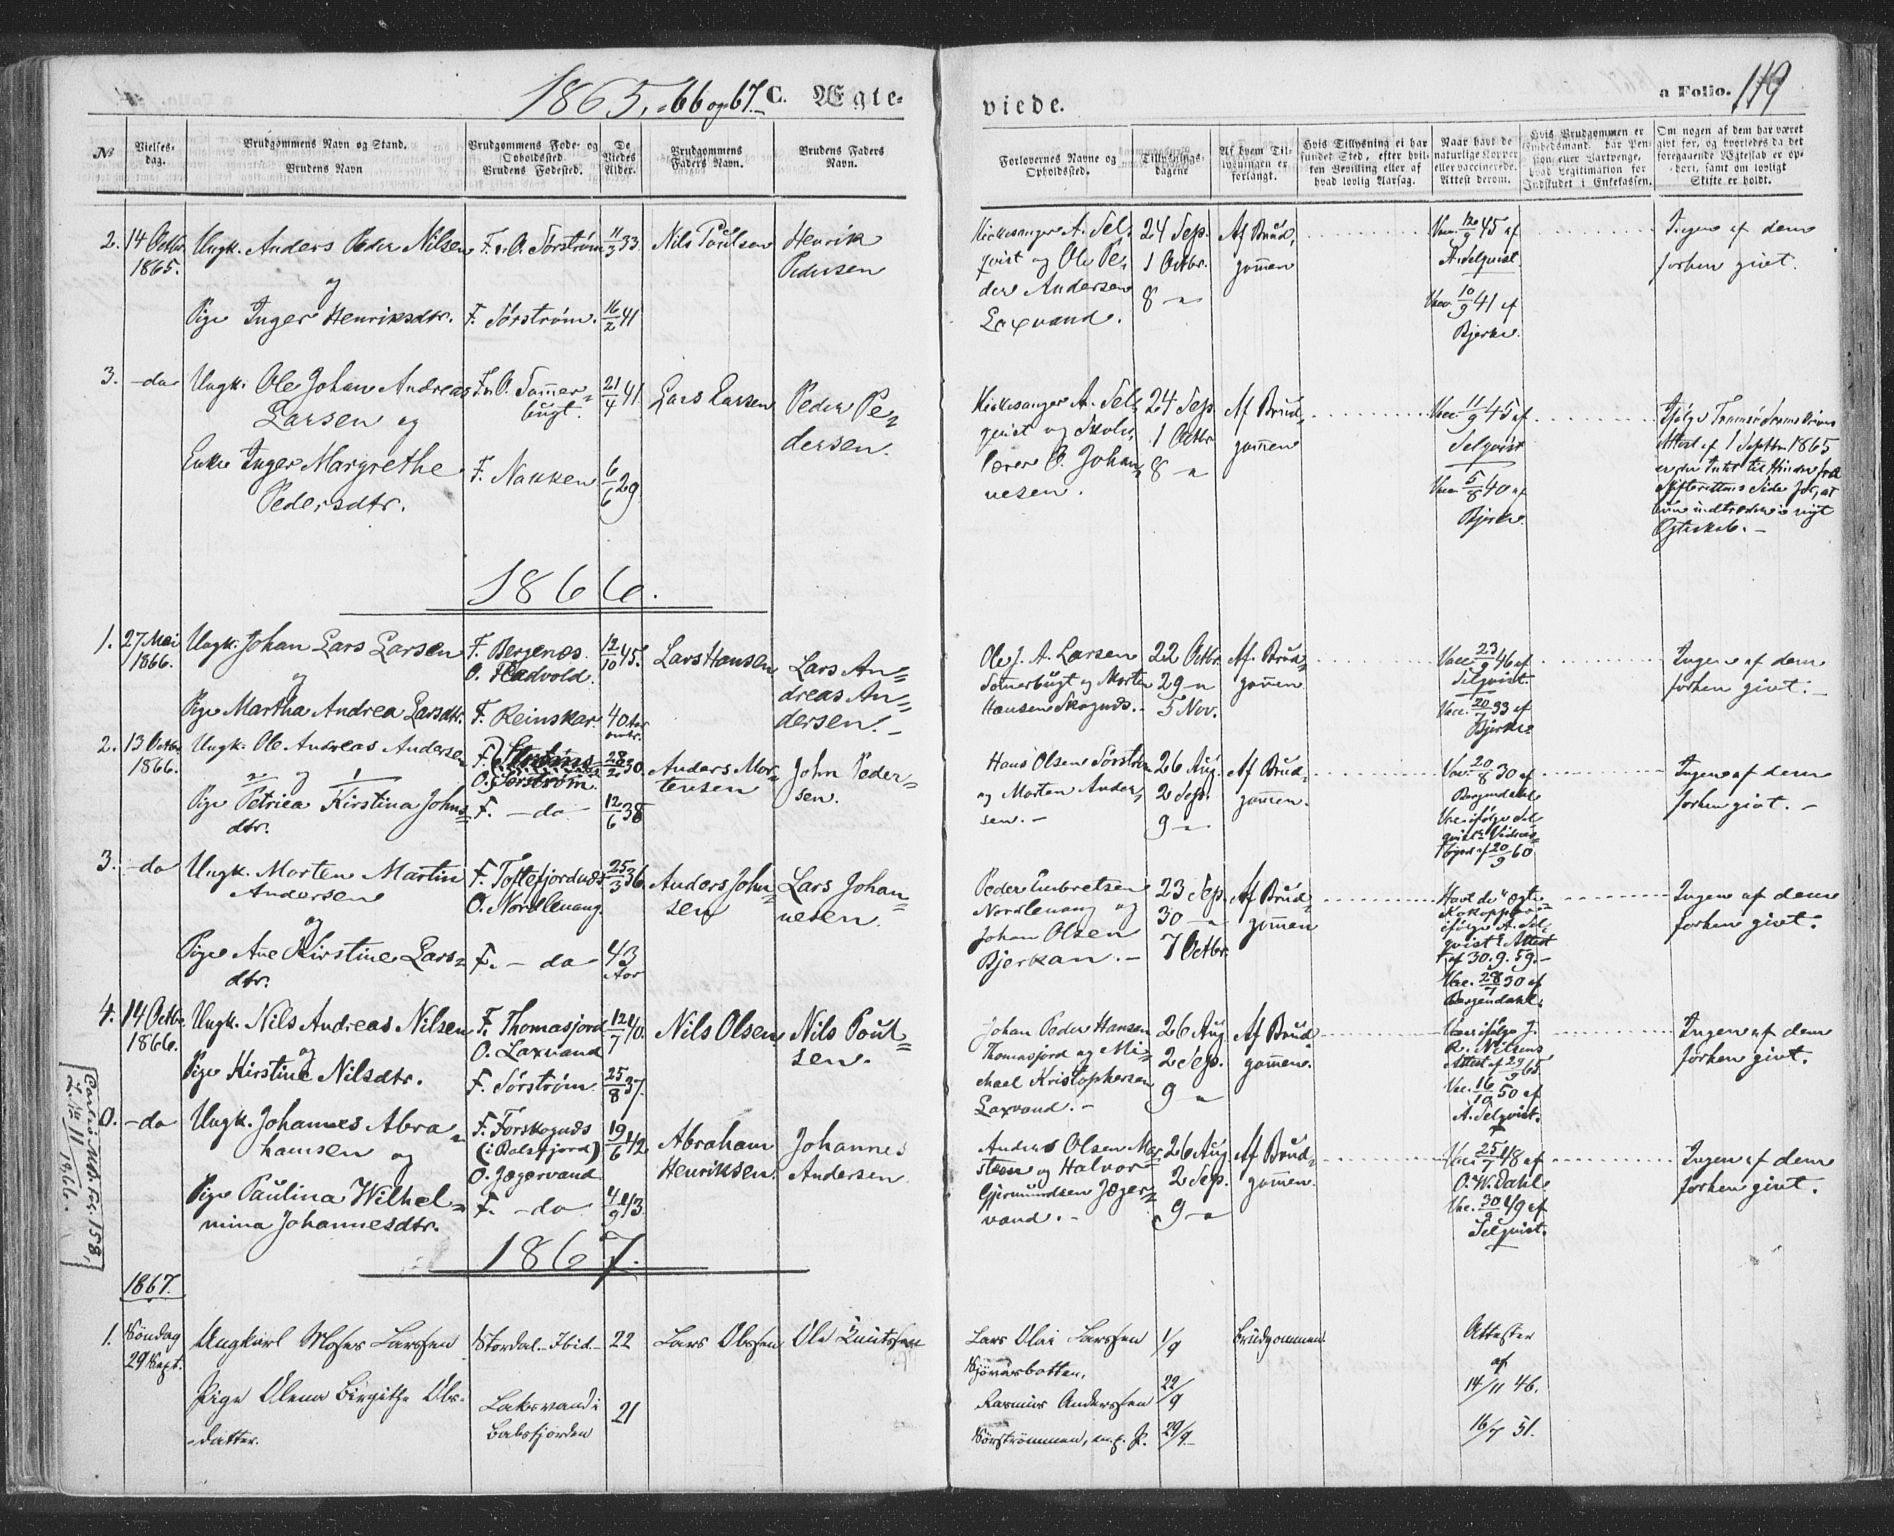 1865, -66 og 67. C. Ægte-
viede.
a Folio. 119
No
Vielses-
dag.
Brudgommens Navn og Stand.
Brudens Navn
Brudgommens Føde- og
Opholdssted
Brudens Fødested.
De
Viedes
Alder.
Brudgommens
Faders Navn.
Brudens Faders
Navn.
Forlovernes Navne og
Opholdssted.
Tillysnings-
dagene
Af hvem Til-
lysningen er
forlangt.
Hvis Tillysning ei har
fundet Sted, efter hvil-
ken Bevilling eller af
hvad lovlig Aarsag.
Naar havt de
naturlige Kopper
eller vaccinerede.
Attest derom.
Hvis Brudgommen er
Embedsmand, bær Pen-
sion eller Vartpenge,
hvad Legitimation for
Indskudet i Enkekassen.
Om nogen af dem har været
givt før, og hvorledes da det
foregaaende Ægteskab er op-
hørt, samt om lovligt
Skifte er holdt.
2. 14 Octbr. 1865.
Ungk. Anders Peder Nilsen
og
Pige Inger Henriksdtr.
F. & O. Sørstrøm
F. Sørstrøm.
11/3 33
16/2 41
Nils Poulsen
Henrik
Pedersen
Kirkesanger A. Sel-
qvist og Ole Pe-
der Andersen
Laxvand.
24 Sep.
1 Octbr.
8 -"-
Af Brud-
gommen
Vacc. 12/9 45 af
A. Selqvist.
Vacc. 10/9 41 af
Bjerke.
Ingen af dem
forhen givt.
3. -do-
Ungk. Ole Johan Andreas
Larsen og
Enke Inger Margrethe
Pedersdtr.
F. & O. Sommer-
bugt.
F. Nakken
21/4 41
6/6 29
Lars Larsen
Peder Pe-
dersen.
Kirkesanger A. Sel-
qvist og Skole-
lærer O. Johan-
nesen.
24 Sep
1 Octbr
8 -"-
Af Brud-
gommen
Vacc. 11/9 45 af
Selqvist
Vacc. 5/8 40 af
Bjerke
Ifølge Tromsø
Attest af 1 Septbr 1865
er der Intet til Hinder fra
Skifterettens Side for, at
hun indtræder i nyt
Ægteskab. -
1866.
1. 27 Mai 1866.
Ungk. Johan Lars Larsen
og
Pige Martha Andrea Larsdtr.
F. Bergenæs.
O. Fladvold.
F. Reinskar.
12/10 45.
40 Aar
Lars Hansen
Lars An-
dreas An-
dersen. -
Ole J. A. Larsen
Somerbugt og Morten
Hansen Skognæs. -
22 Octbr.
29 -"-
5 Nov.
Af Brud-
gommen
Vacc. 23/9 46 af
Selqvist.
Vacc. 20/7 33 af
Bjerke
Ingen af dem
forhen givt. -
2. 13 Octbr. 1866.
Ungk. Ole Andreas Andersen
og
Pige Petrica Kirstina Johns-
dtr.
O. Sørstrøm.
F. -do-
28/2 30.
12/6 38
Anders Mor-
tensen
John Peder-
sen.
Hans Olsen Sørstrøm
og Morten Ander-
sen. -
26 Aug.
2 Sep.
9 -"-
Af Brud-
gommen.
Vacc. 20/8 30 af
Bergendahl
Vacc. ifølge Sel-
qvists Vidnes-
byrd af 20/9 60
Ingen af dem
forhen givt. -
3. -do
Ungk. Morten Martin
Andersen
og
Pige Ane Kirstine Lars-
dtr.
F. Toftefjordnæs
O. Nordlenang.
F. -do-
25/3 36
43
Aar
Anders John-
sen
Lars Johan-
nesen.
Peder Embretsen
Nordlenang og
Johan Olsen
Bjerkan. -
23 Sep.
30 -"-
7 Octbr.
Af Brud-
gommen
Havt de ægte
Kokopper
ifølge A. Sel-
qvists Attest
af 30.9.59. -
Vac. 28/7 30 af
Bergendahl.
Ingen af dem
forhen givt.
4. 14 Octbr. 1866.
Ungk. Nils Andreas Nilsen
og
Pige Kirstine Nilsdtr.
F. Thomasjord
O. Laxvand
F. Sørstrøm
12/7 40.
25/8 37.
Nils Olsen
Nils Poul-
sen.
Johan Peder Hansen
Thomasjord og Mi-
chael Kristophersen
Laxvand. -
26 Aug
2 Sep.
9 -"-
Af Brud-
gommen.
Vacc. ifølge J.
R. Nilsens
Attest af 29/9 65
Vac. 16/10 50 af
A. Selqvist.
Ingen af dem
forhen givt.
0. -do
Ungk. Johannes Abra-
hamsen og
Pige Paulina Wilhel-
mina Johannesdtr.
F. Forskognæs
(i Balsfjord)
O. Jægervand
F. -do-
19/6 42
4/9 43.
Abraham
Henriksen.
Johannes
Andersen.
Anders Olsen
og Halvor
Gjermundsen Jæger-
vand. -
26 Aug
2 Sep.
9 -"-
Af Brud-
gommen.
Vacc. 25/7 48 af
O. W. Dahl
Vac. 30/9 49 af
Selqvist.
Ingen af dem
forhen givt.
Fol. 158,
11 1866.
1867.
1867.
1. Søndag
29 Sept.
Ungkarl Moses Larssen
Pige Olena Birgithe Ols-
datter.
Stordal - Ibid -
Laksvand i
Balsfjorden
22
21
Lars Olssen
Ole
Lars Olai Larssen
Sjøvasbotten,
Rasmus Anderssen
Sørstrømmen,
1/9
22/9
29/9
Brudgommen
Attester
af
14/11 46.
16/7 51.